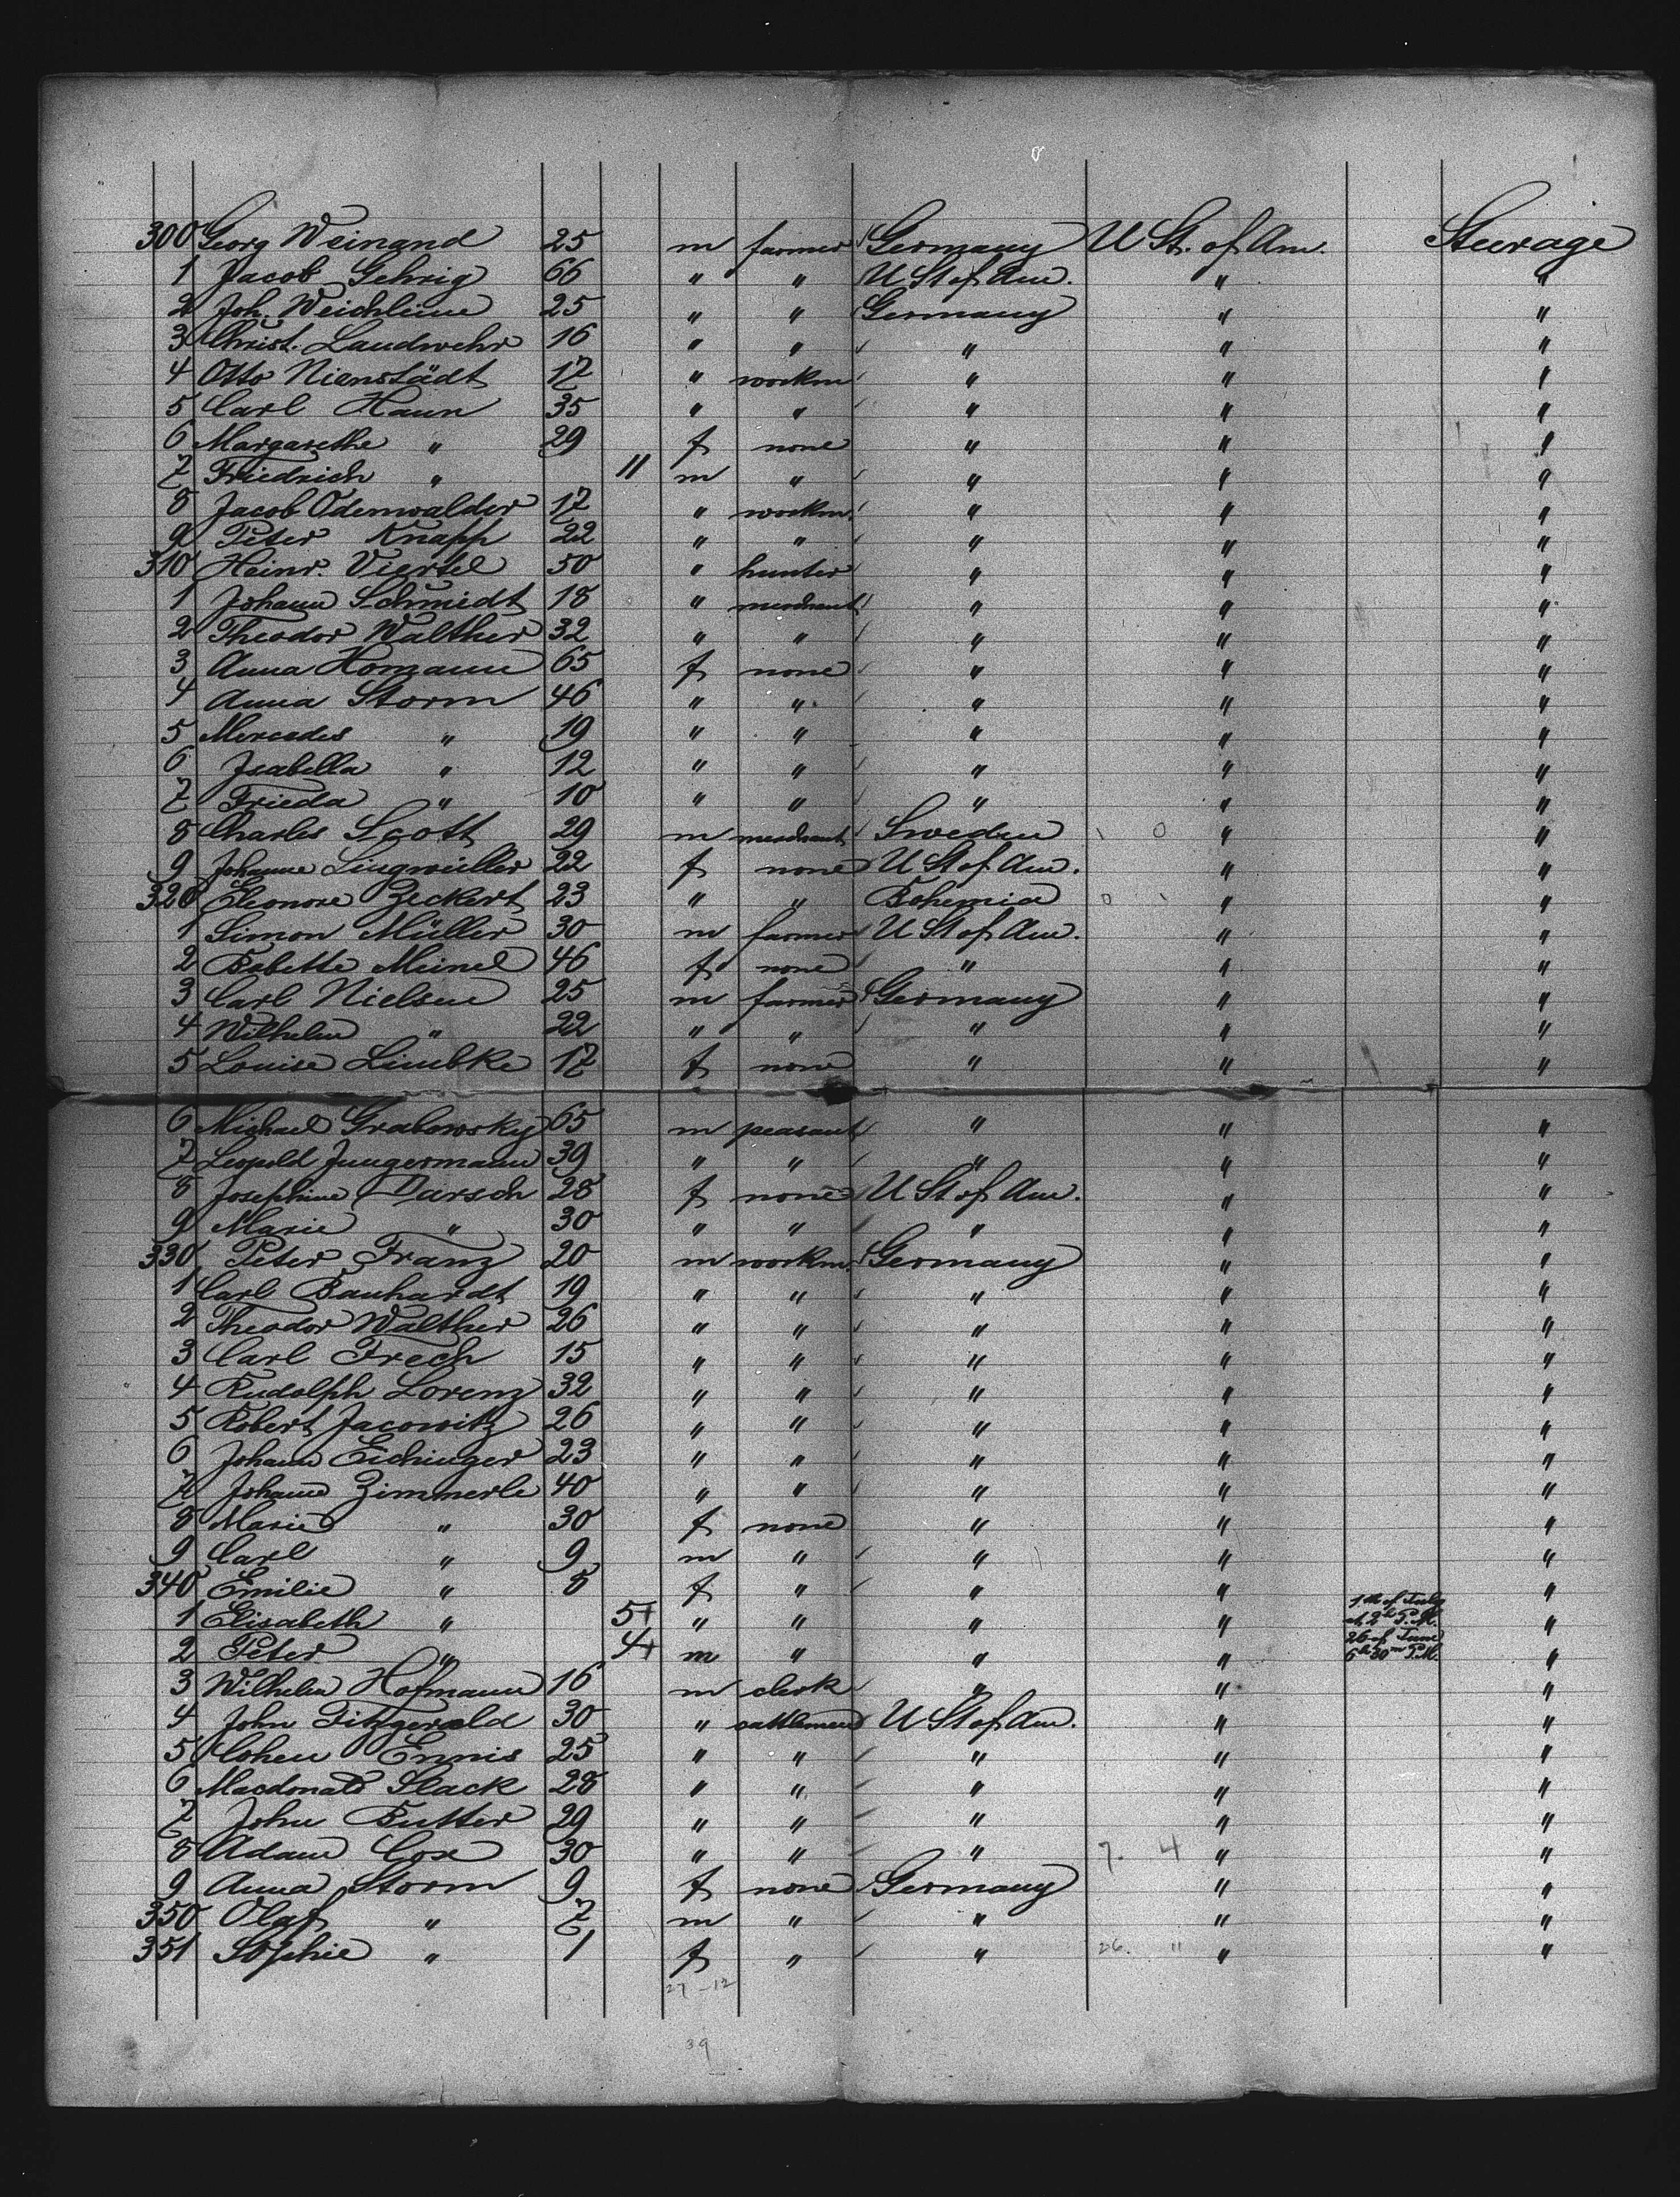 300 Georg Weinand 25 m farmer Germany U St. of Am. Steerage
1 Jacob Gehrig 66 " " U St of Am. " "
2 Joh. Weichlein 25 " " Germany " "
3 Christ. Landwehr 16 " " " " "
4 Otto Nienstädt 17 " workm " " "
5 Carl Haun 35 " " " " "
6 Margarethe " 29 f none " " "
7 Friedrich " 11 m " " " "
8 Jacob Odenwalder 17 " workm. " " "
9 Peter Knapp 22 " " " " "
310 Heinr. Viertel 50 " hunter " " "
1 Johann Schmidt 18 " merchant " " "
2 Theodor Walther 32 " " " " "
3 Anna Homann 65 f none " " "
4 Anna Storm 46 " " " " "
5 Mercedes " 19 " " " " "
6 Isabella " 12 " " " " "
7 Frieda " 10 " " " " "
8 Charles Scott 29 m merchant Sweden " "
9 Johanne 22 f none U St of Am. " "
320 Eleonore Zeckert 23 " " Bohemia " "
1 Simon Müller 30 m farmer U St of Am. " "
2 Babette Meinel 46 f none " " "
3 Carl Nielsen 25 m farmer Germany " "
4 Wilhelm " 22 " " " " "
5 Louise Limbke 17 f none " " "
6 Michael Grabowsky 65 m peasant " " "
7 Leopold Jungermann 39 " " " " "
8 Josephine Darsch 28 f none U St of Am. " "
9 Marie " 30 " " " " "
330 Peter Franz 20 m workm. Germany " "
1 Carl Banhardt 19 " " " " "
2 Theodor Walther 26 " " " " "
3 Carl Frech 15 " " " " "
4 Rudolph Lorenz 32 " " " " "
5 Robert Jacowitz 26 " " " " "
6 Johann Eichinger 23 " " " " "
7 Johann Zimmerle 40 " " " " "
8 Marie " 30 f none " " "
9 Carl " 9 m " " " "
340 Emilie " 8 f " " " "
1 Elisabeth " 5+ " " " " 1st of July at 2h P.M. "
2 Peter " 4+ m " " " 26 of June 6h 30m P.M. "
3 Wilhelm Hofmann 16 m clerk " " "
4 John Fitzgerald 30 " cattlemen U St of Am. " "
5 Cohen Ennis 25 " " " " "
6 Macdonald Slack 28 " " " " "
7 John Butter 29 " " " " "
8 Adam Cox 30 " " " 7. 4 " "
9 Anna Storm 9 f none Germany " "
350 Olaf " 7 m " " " "
351 Sophie " 1 f " " 26. " " "
27-12
39